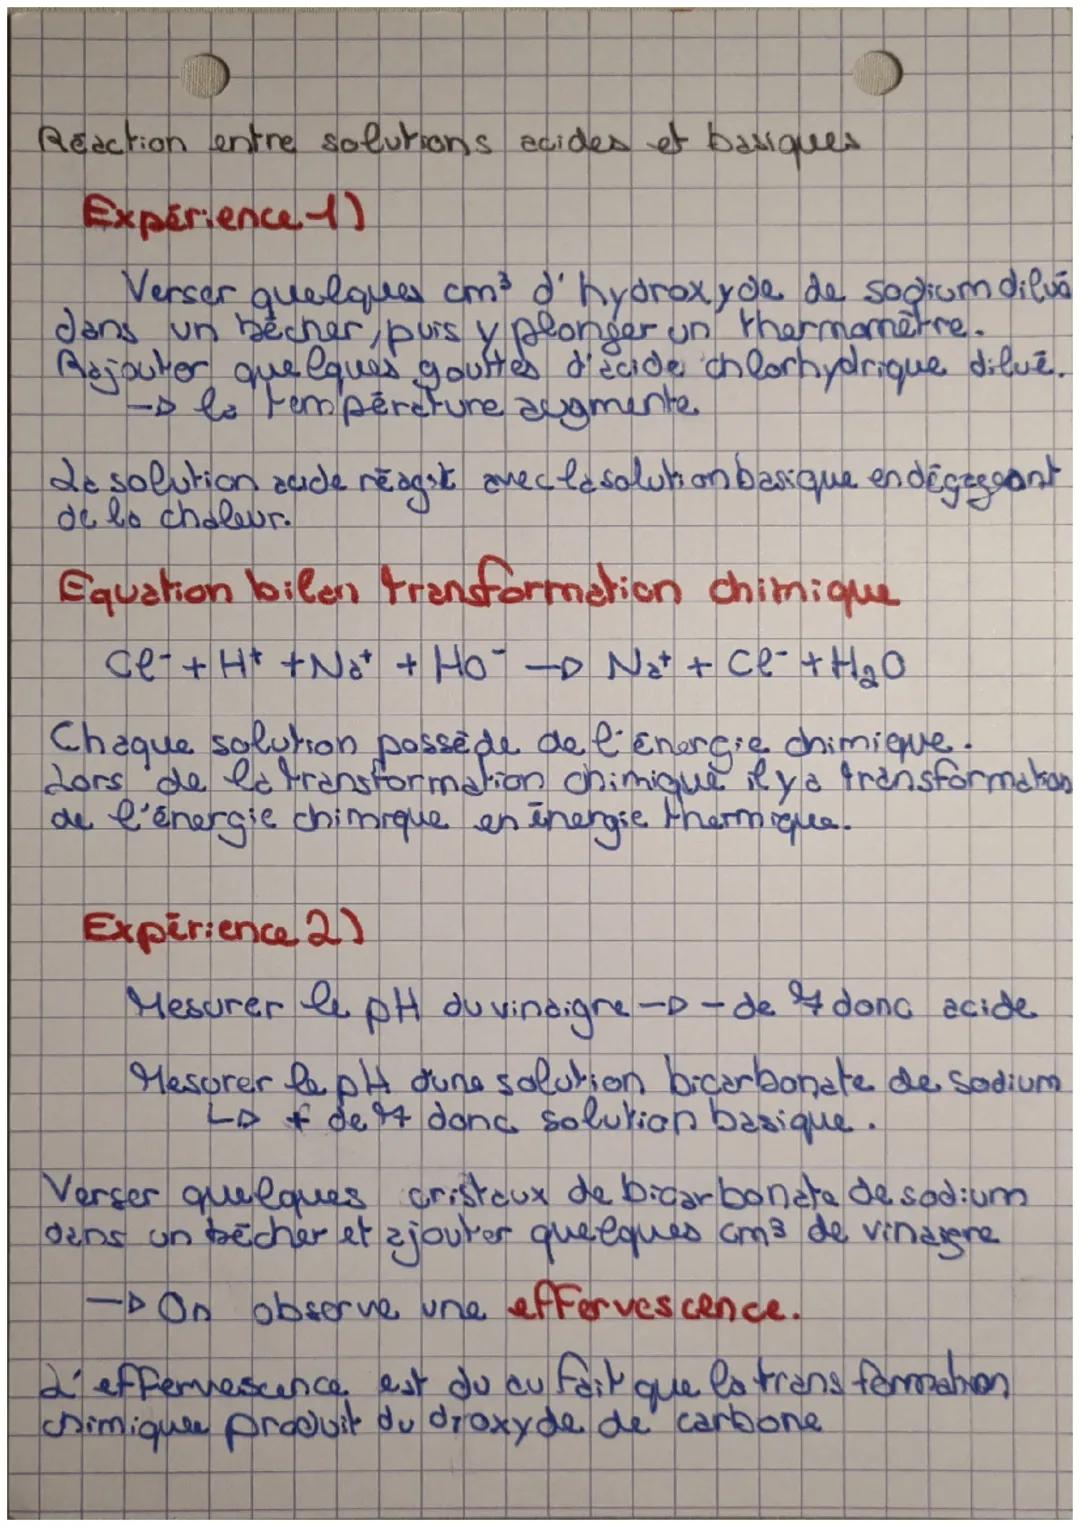 Réaction entre solutions acides et basiques
Expérience 1)
Verser quelques cm³ d'hydroxyde de sodium dilué
dans un bécher, puis y plonger un thermomètre.
Rajouter quelques gouttes d'acide chlorhydrique dilué.
→ la température augmente
La solution acide réagit avec la solution basique en dégageant
de la chaleur.
Equation bilan transformation chimique
Cl⁻ + H⁺ + Na⁺ + HO⁻ → Na⁺ + Cl⁻ + H₂O
Chaque solution possède de l'énergie chimique.
Lors de la transformation chimique il y a transformation
de l'énergie chimique en énergie thermique.
Expérience 2)
Mesurer le pH du vinaigre → - de 7 donc acide
Mesurer le pH d'une solution bicarbonate de sodium
↳ + de 7 donc solution basique.
Verser quelques cristaux de bicarbonate de sodium
dans un bécher et ajouter quelques cm3 de vinaigre
→ On observe une effervescence.
L'effervescence est du au fait que la transformation
chimique produit du dioxyde de carbone